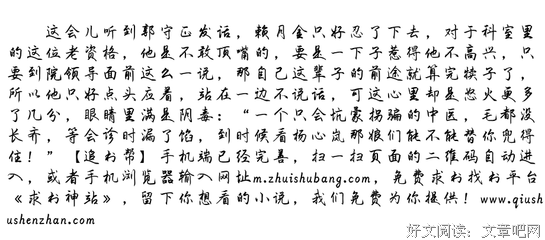 这会儿听到郭守正发话，赖月金只好忍了下去，对于科室里
的这位老资格，他是不敢顶嘴的，要是一下子惹得他不高兴，只
要到院领导面前这么一说，那自己这辈子的前途就算完犊子了，
所以他只好点头应着，站在一边不说话，可这心里却是怒火更多
了几分，眼睛里满是阴毒：“一个只会坑蒙拐骗的中医，毛都没
长齐，等会诊时漏了馅，到时候看杨心岚那娘们能不能替你兜得
住！”【追书帮】手机端已经完善，扫一扫页面的二维码自动进
入，或者手机浏览器输入网址m.zhuishubang.com，免费求书找书平台
《求书神站》，留下你想看的小说，我们免费为你提供！www.qiush
ushenzhan.com
好文阅读：文章吧网